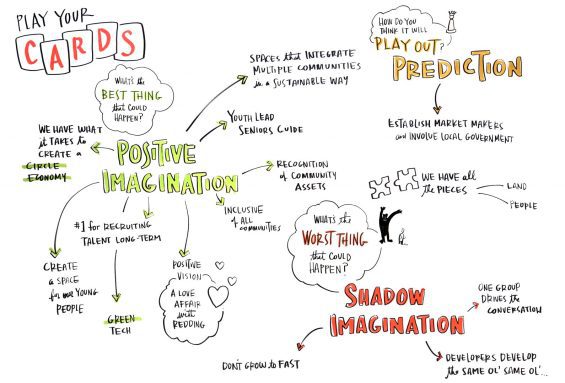 PLAY YOUR
CARDS
WHAT'S the
BEST THING
that COULD
HAPPEN?
POSITIVE
IMAGINATION
WE HAVE WHAT
it TAKES to
CREATE a
CIRCLE
ECONOMY
SPACES that INTEGRATE
MULTIPLE COMMUNITIES
in a SUSTAINABLE WAY
YOUTH LEAD
SENIORS GUIDE
RECOGNITION
of COMMUNITY
ASSETS
INCLUSIVE
of ALL
COMMUNITIES
#1 for RECRUITING
TALENT LONG-TERM
CREATE
a SPACE
for YOUNG
PEOPLE
GREEN
TECH
POSITIVE
VISION
A LOVE
AFFAIR
with
REDDING
HOW DO YOU
THINK IT WILL
PLAY OUT?
PREDICTION
ESTABLISH MARKET MAKERS
and INVOLVE LOCAL GOVERNMENT
WE HAVE all
the PIECES
LAND
PEOPLE
WHAT'S the
WORST THING
that COULD
HAPPEN?
SHADOW
IMAGINATION
ONE GROUP
DRIVES the
CONVERSATION
DON'T GROW to FAST
DEVELOPERS DEVELOP
the SAME OL' SAME OL'...